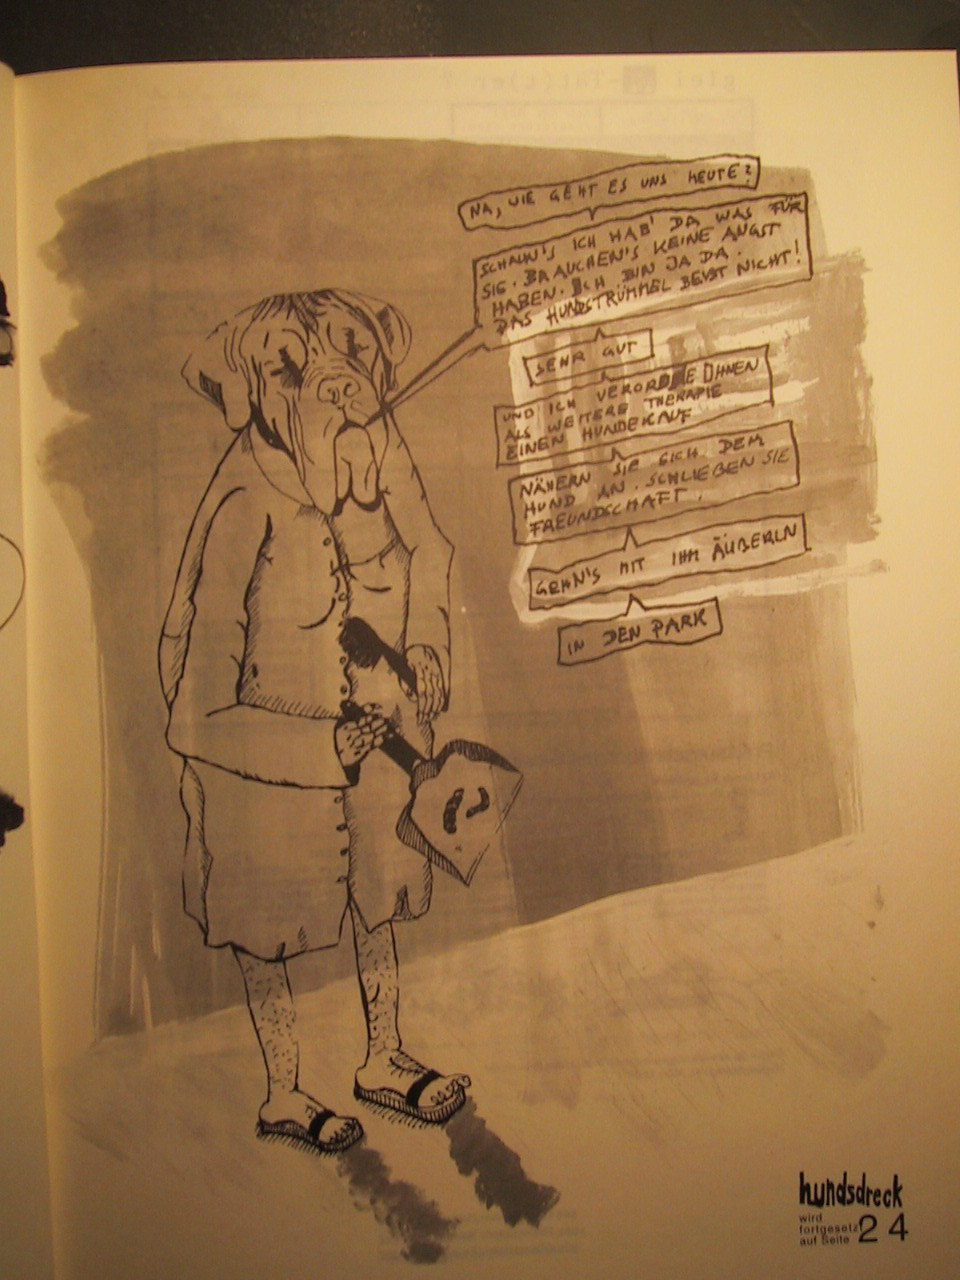 NA, WIE GEHT ES UNS HEUTE?
SCHAUN'S ICH HAB' DA WAS FÜR
SIE. BRAUCHEN'S KEINE ANGST
HABEN. ICH BIN JA DA.
DAS HUNDSTRÜMMEL BEIßT NICHT!
SEHR GUT
UND ICH VERORDNE IHNEN
ALS WEITERE THERAPIE
EINEN HUNDEKAUF
NÄHERN SIE SICH DEM
HUND AN. SCHLIEßEN SIE
FREUNDSCHAFT.
GEHN'S MIT IHM ÄUßERLN
IN DEN PARK
hundsdreck
wird
fortgesetzt
auf Seite 24